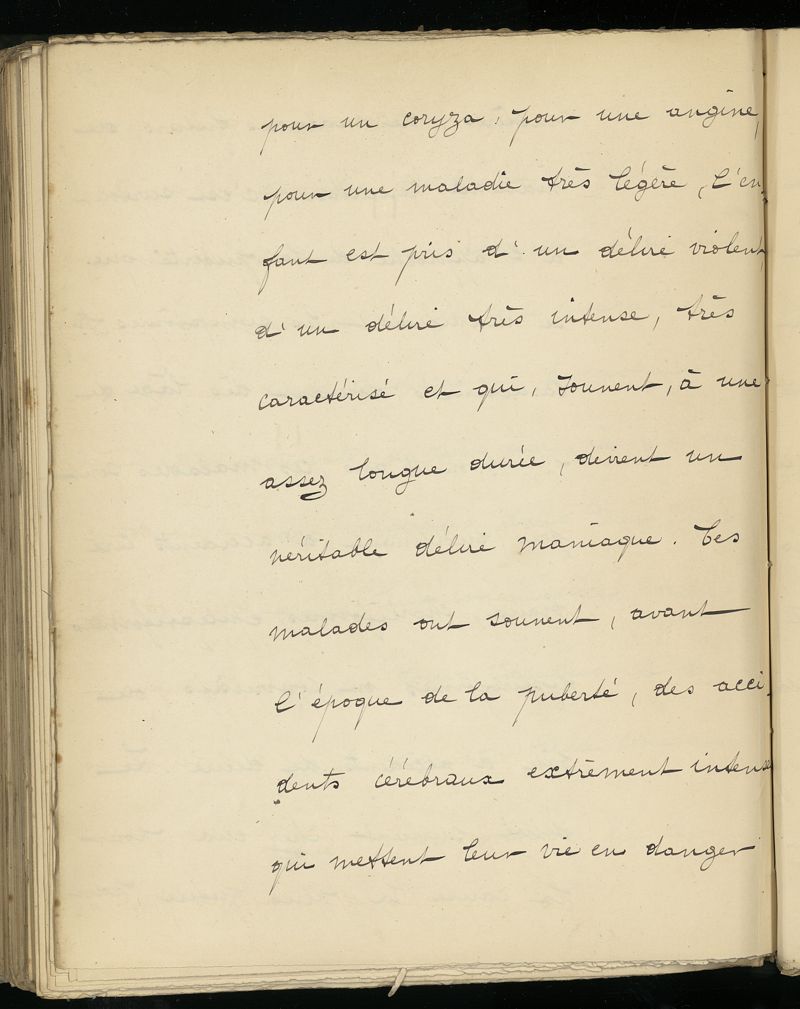 pour un coryza, pour une angine,
pour une maladie très légère, l'en-
fant est pris d'un délire violent,
d'un délire très intense, très
caractérisé et qui, souvent, à une
assez longue durée, devient un
véritable délire maniaque. Ces
malades ont souvent, avant
l'époque de la puberté, des acci-
dents cérébraux extrèment intenses
qui mettent leur vie en danger